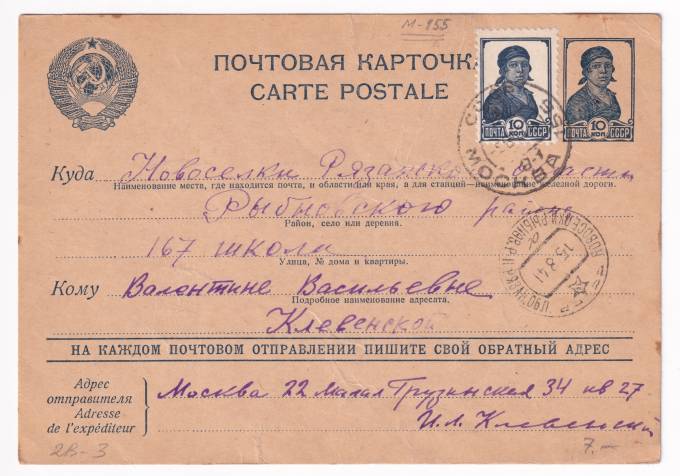 М-155
ПОЧТОВАЯ КАРТОЧКА
CARTE POSTALE
10 КОП.
ПОЧТА СССР
10 КОП.
ПОЧТА СССР
МОСКВА
Куда Новоселки Рязанской области
Наименование места, где находится почта, и области или края, а для станций—наименование железной дороги.
Рыбновского района
Район, село или деревня.
167 школа
Улица, № дома и квартиры.
15.8.41
Кому Валентине Васильевне
Подробное наименование адресата.
Клевенской
НА КАЖДОМ ПОЧТОВОМ ОТПРАВЛЕНИИ ПИШИТЕ СВОЙ ОБРАТНЫЙ АДРЕС
Адрес отправителя
Adresse de l'expéditeur
Москва 22 Малая Грузинская 34 кв 27
И. Л. Клевенский
2В-3
7.—